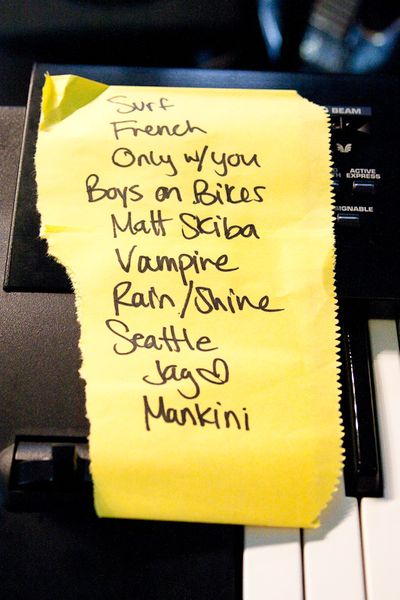 Surf
French
Only w/you
Boys on Bikes
Matt Skiba
Vampire
Rain/Shine
Seattle
Jag♡
Mankini
BEAM
ACTIVE
EXPRESS